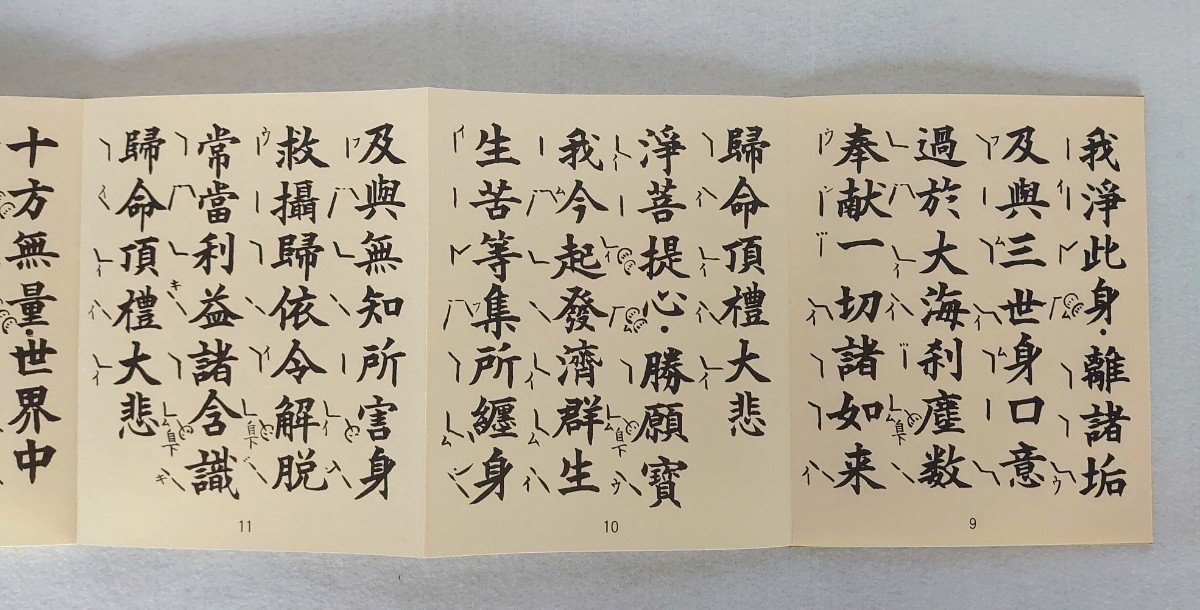 我淨此身・離諸垢
及與三世身口意
過於大海刹塵数
奉献一切諸如来
9
歸命頂禮大悲
淨菩提心・勝願寶
我今起發濟群生
生苦等集所纒身
10
及與無知所害身
救攝歸依令解脱
常當利益諸含識
歸命頂禮大悲
11
十方無量・世界中